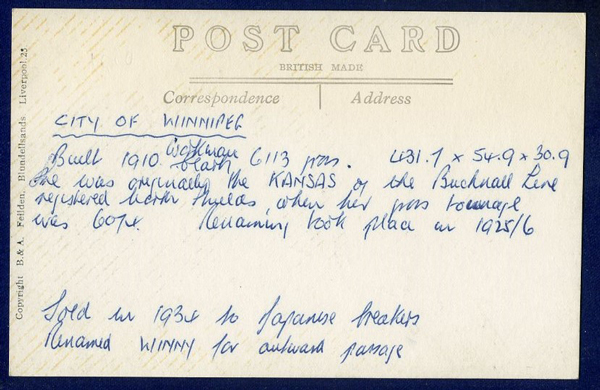 POST CARD
BRITISH MADE
Correspondence
Address
Copyright B.& A. Feilden, Blundellsands Liverpool 23
CITY OF WINNIPEG
Built 1910. Workman Clark 6113 gross. 431.7 x 54.9 x 30.9
She was originally the KANSAS of the Bucknall Line
registered North Shields, when her gross tonnage
was Renaming took place in 1925/6
Sold in to Japanese breakers
Renamed WINNY for outward passage